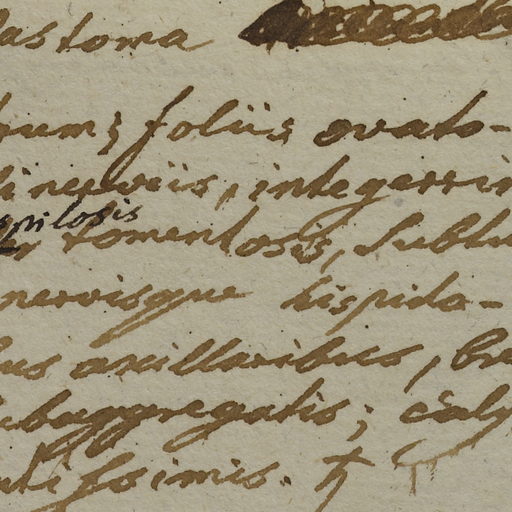 lastoma
bum; foliis ovato-
tinerviis, integerrim
pilosis
tomentosis, subtu
nervisque hispido-
lus axillaribus, bre
ubaggregatis; caly
utiformis. ♄